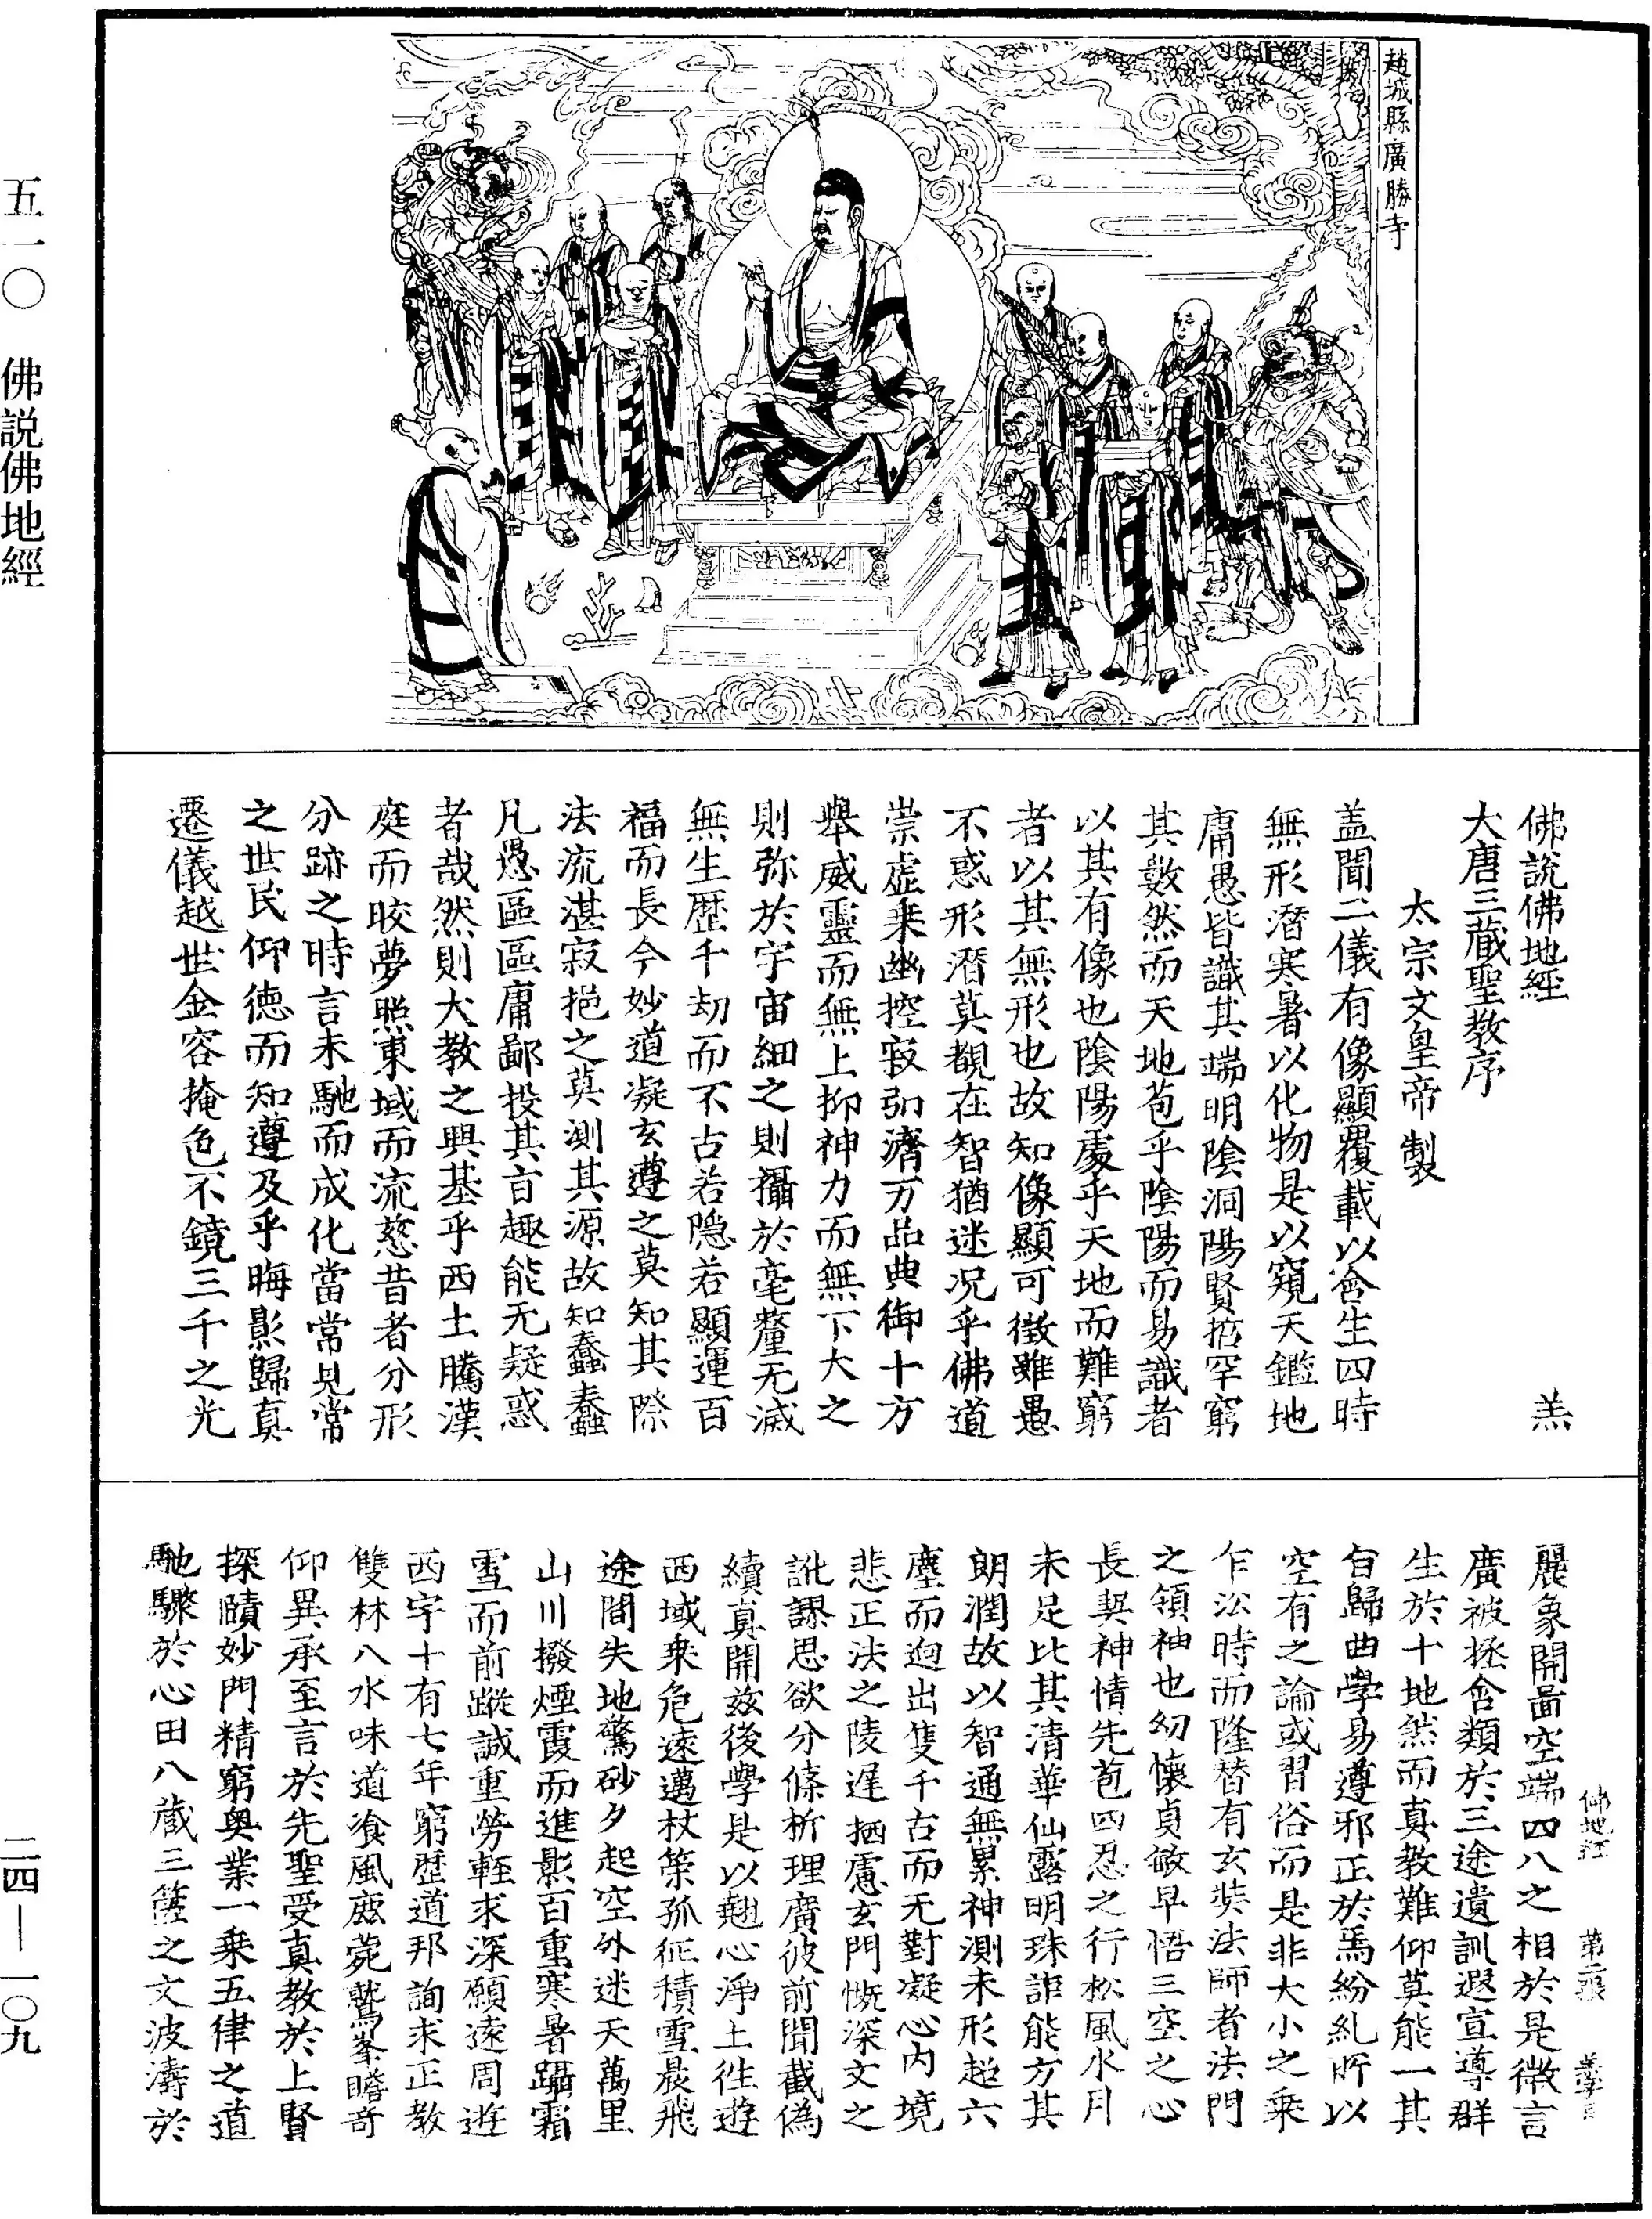 趙城縣廣勝寺
佛說佛地經　羔
大唐三藏聖教序
太宗文皇帝製
盖聞二儀有像顯覆載以含生四時
無形潛寒暑以化物是以窺天鑑地
庸愚皆識其端明陰洞陽賢哲罕窮
其數然而天地苞乎陰陽而易識者
以其有像也陰陽處乎天地而難窮
者以其無形也故知像顯可徵雖愚
不惑形潛莫覩在智猶迷況乎佛道
崇虛乗幽控寂弘濟万品典御十方
舉威靈而無上抑神力而無下大之
則弥於宇宙細之則攝於毫釐无滅
無生歷千劫而不古若隱若顯運百
福而長今妙道凝玄遵之莫知其際
法流湛寂挹之莫測其源故知蠢蠢
凡愚區區庸鄙投其旨趣能无疑惑
者哉然則大教之興基乎西土騰漢
庭而晈夢照東域而流慈昔者分形
分跡之時言未馳而成化當常見常
之世民仰德而知遵及乎晦影歸真
遷儀越世金容掩色不鏡三千之光
麗象開啚空端四八之相於是微言
廣被拯含類於三途遺訓遐宣導群
生於十地然而真教難仰莫能一其
旨歸曲學易遵邪正於焉紛糺所以
空有之論或習俗而是非大小之乗
乍沿時而隆替有玄奘法師者法門
之領袖也幼懷貞敏早悟三空之心
長契神情先苞四忍之行松風水月
未足比其清華仙露明珠詎能方其
朗潤故以智通無累神測未形超六
塵而迥出隻千古而无對凝心內境
悲正法之陵遲栖慮玄門慨深文之
訛謬思欲分條析理廣彼前聞截偽
續真開茲後學是以翹心淨土徃遊
西域乗危遠邁杖策孤征積雪晨飛
途間失地驚砂夕起空外迷天萬里
山川撥煙霞而進影百重寒暑躡霜
雪而前蹤誠重勞輕求深願遠周遊
西宇十有七年窮歷道邦詢求正教
雙林八水味道飡風鹿菀鷲峯瞻奇
仰異承至言於先聖受真教於上賢
探賾妙門精窮奥業一乗五律之道
馳驟於心田八藏三篋之文波濤於
佛地經　第二張
五一〇　佛説佛地經
二四—一〇九